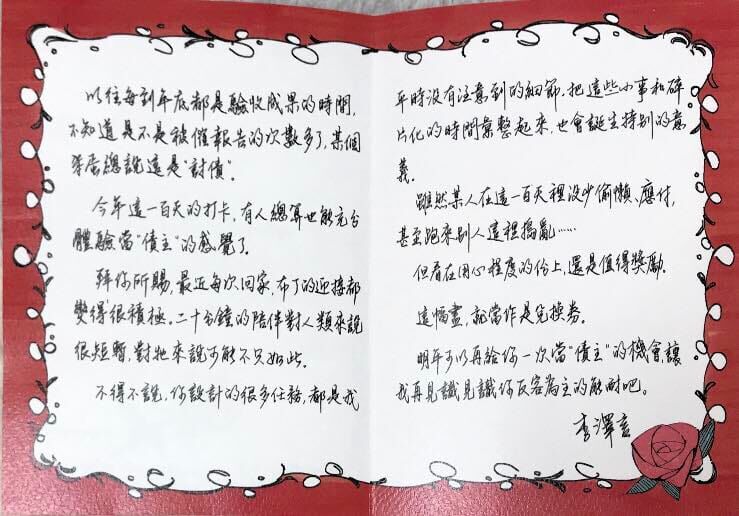 以往每到年底都是驗收成果的時間,
不知道是不是被催報告的次數多了,某個
笨蛋總說這是"討債"。
今年這一百天的打卡,有人總算也能充分
體驗當"債主"的感覺了。
拜你所賜,最近每次回家,布丁的迎接都
變得很積極,二十分鐘的陪伴對人類來說
很短暫,對牠來說可能不只如此。
不得不說,你設計的很多任務,都是我
平時沒有注意到的細節。把這些小事和碎
片化的時間彙整起來,也會誕生特別的意
義。
雖然某人在這一百天裡沒少偷懶、應付,
甚至跑來別人這裡搗亂……
但看在用心程度的份上,還是值得獎勵。
這幅畫,就當作是兌換券。
明年可以再給你一次當"債主"的機會,讓
我再見識見識你反客為主的能耐吧。
李澤言